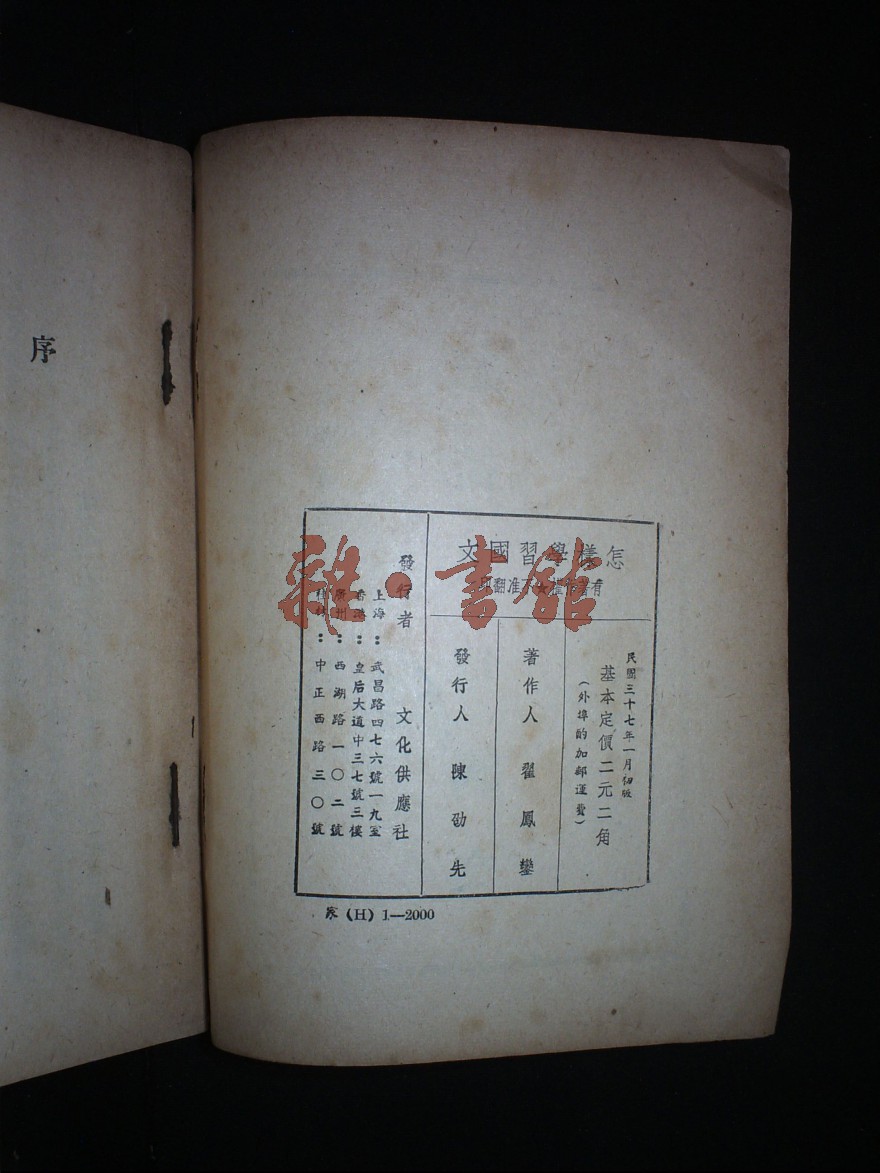 序
怎樣學習國文
有著作權・不准翻印
民國三十七年一月初版
基本定價二元二角
(外埠酌加郵運費)
著作人 翟鳳鑾
發行人 陳劭先
發行者 文化供應社
上海:武昌路四七六號一九室
香港:皇后大道中三七號三樓
廣州:西湖路一〇二號
桂林:中正西路三〇號
(H) 1—2000
雜・書館